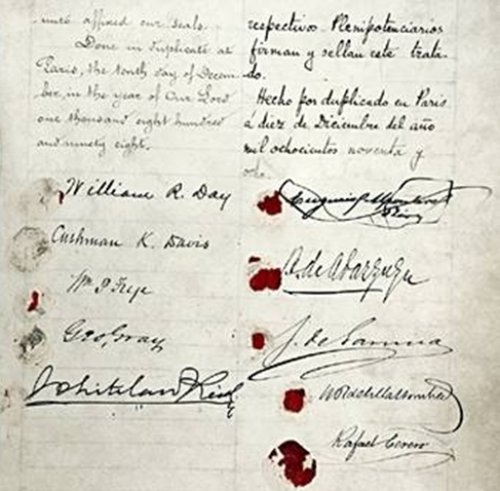 unto affixed our seals.
Done in duplicate at
Paris, the tenth day of Decem-
ber, in the year of Our Lord
one thousand eight hundred
and ninety eight.
William R. Day
Cushman K. Davis
Wm P. Frye
Geo. Gray
Whitelaw Reid
respectivos Plenipotenciarios
firman y sellan este trata-
do.
Hecho por duplicado en Paris
á diez de Diciembre del año
mil ochocientos noventa y
ocho.
Eugenio Montero
Rios
B. de Abarzuza
J. de Garnica
W R de Villa Urrutia
Rafael Cerero